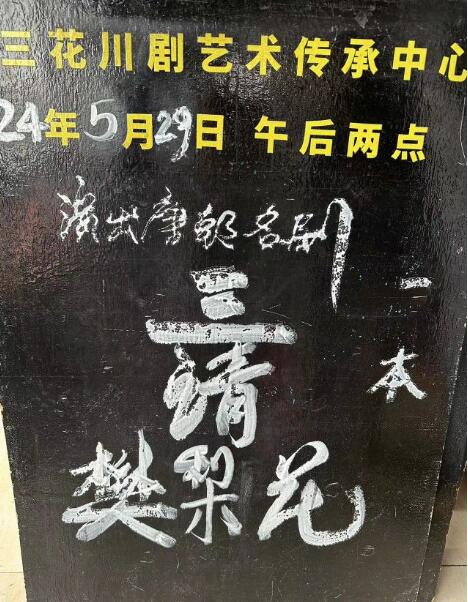 三花川剧艺术传承中心
24年5月29日 午后两点
演出唐朝名剧
一本
三请
樊梨花